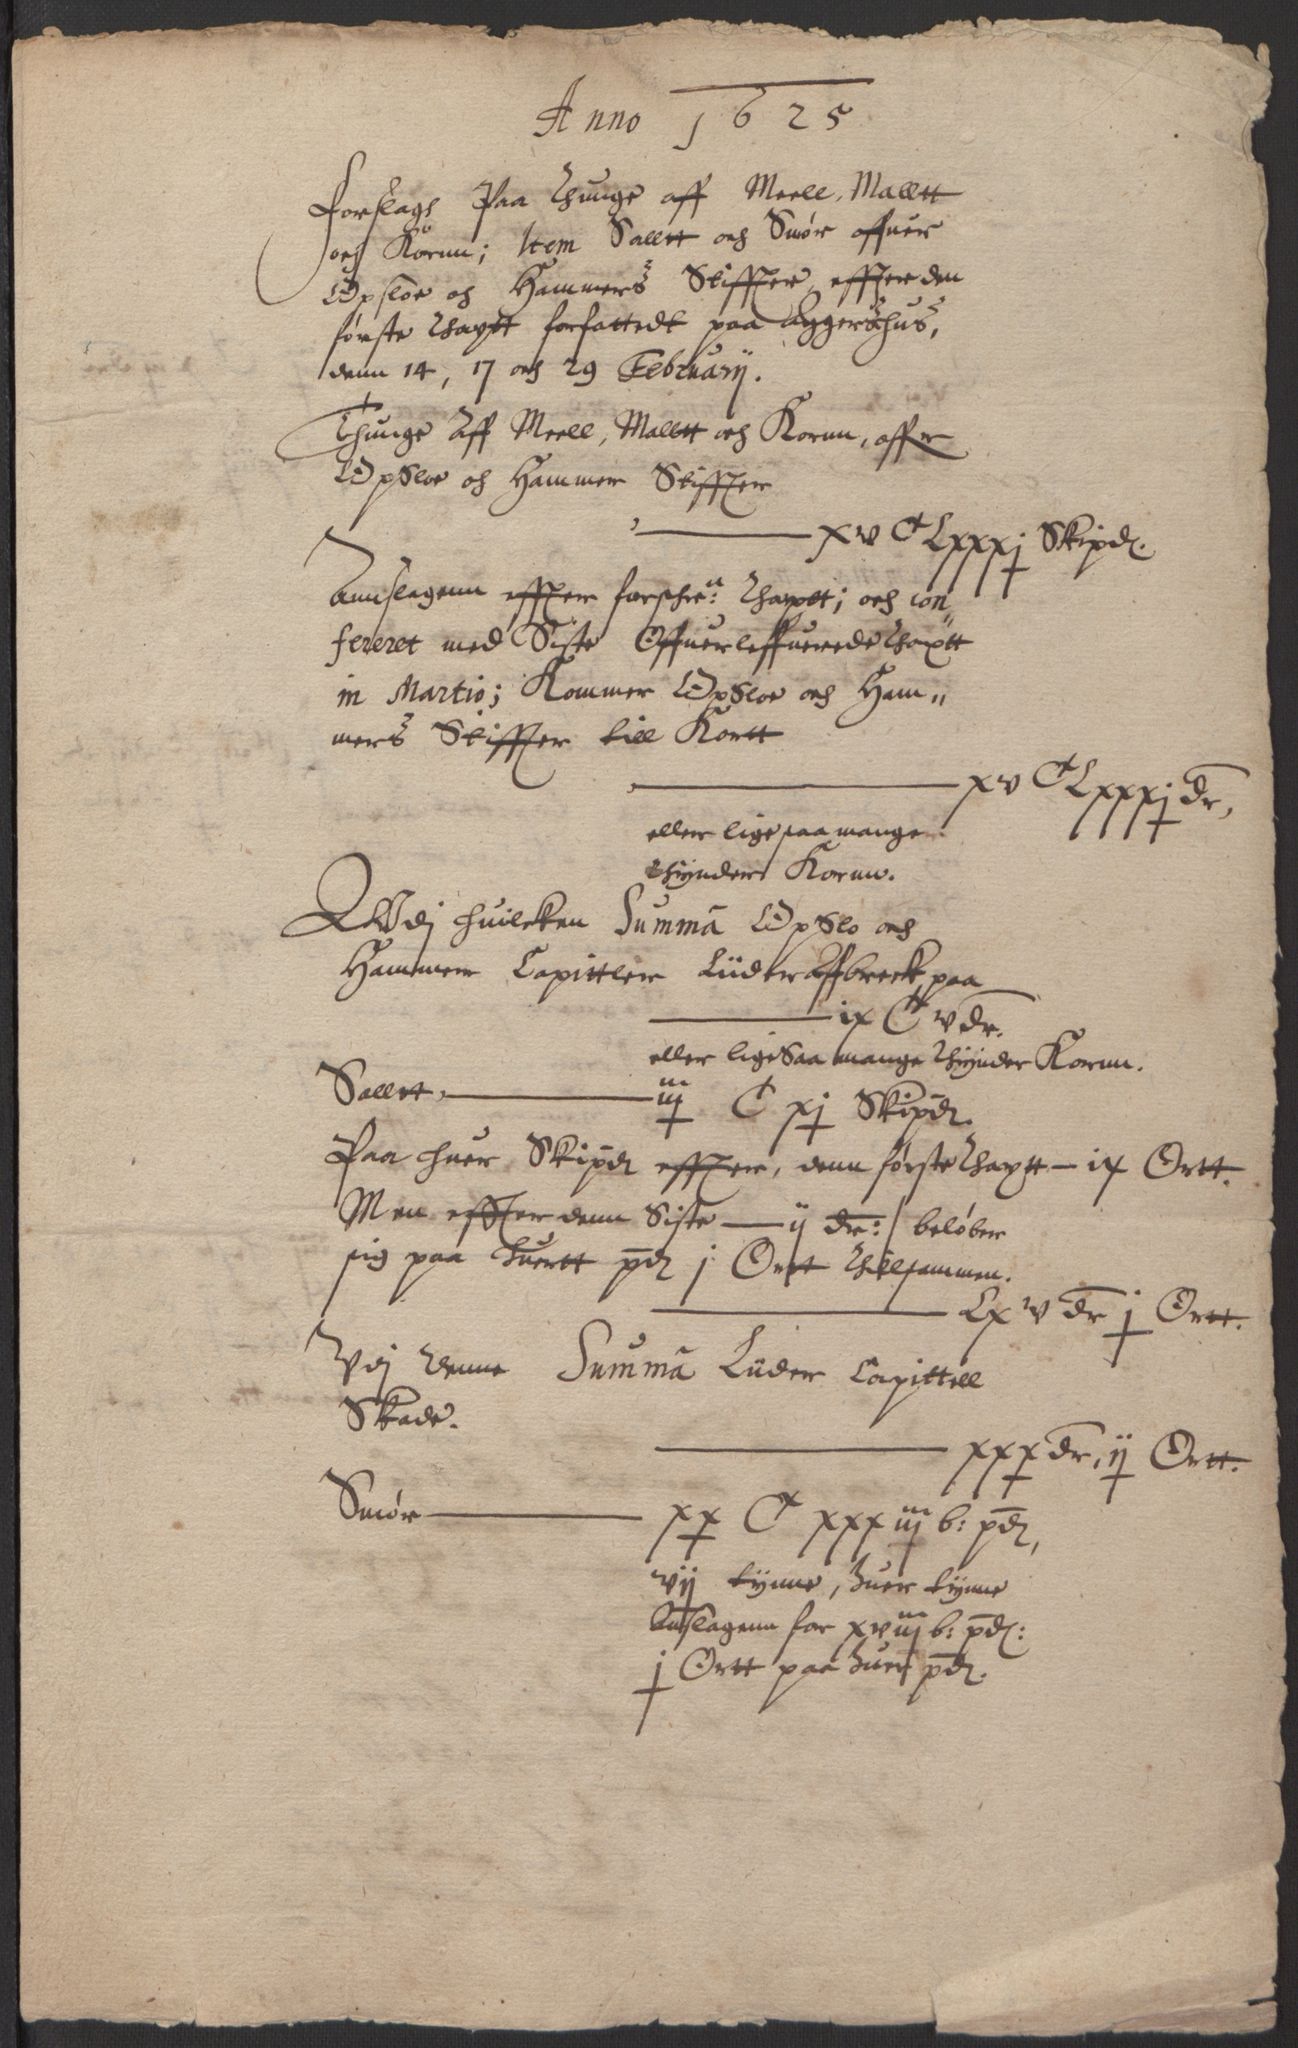 Anno 1625
Forslagh Paa Thunge aff Meell, Malltt
och Kornn; Item Salltt och Smør offuer
Opsloe och Hammers Stiffter effter den
første Thaxt forfattedt paa Aggershuus,
denn 14, 17 och 29 Februarij.
Thunge Aff Meell, Malltt och Kornn, offr
OpSloe och Hammer Stiffter
xv C Lxxxj Skipd.
Annslagenn effter forschrne: Thaxt; och con
fereret med Siste Offuerleffuerede Thaxtt
in Martio; Kommer OpSloe och Ham„
mers Stiffter till Kortt
xv C Lxxxj dr,
eller lige saa mange
thynder Kornn.
Wdj huilcken Summa OpSlo och
Hammer Capittler Lüder Affbreck paa
ix C v dr.
eller lige Saa mange Thynder Kornn.
Salltt iiij C xj Skipd.
Paa huer Skipd effter, denn første Thaxtt – ix Ortt.
Men effter denn Siste — ij dr: beløber
sig paa huertt pd j Ortt Thillsammen.
Cx v dr j Ortt.
Vdj denne Summa Lüder Capittell
Skade.
xxx dr, ij Ortt.
Smør xx C xxx iiij b: pd,
vij tynne, huer tynne
Anslagenn for xv iiij b: pd:
j Ortt paa huer pd.